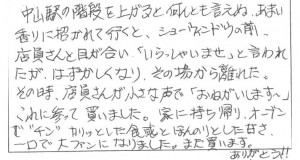 中山駅の階段を上がると何んとも言えぬ、あまい
香りに招かれて行くと、ショーウンドウの前、
店員さんと目が合い、「いらっしゃいませ」と言われ
たが、はずかしくなり、その場から離れた。
その時、店員さんが小さな声で「おねがいします〜」
これに参って買いました。家に持ち帰り、オーブン
で"チン"カリッとした食感とほんのりとした甘さ、
一口で大フアンになりました。また買います。
ありがとう!!